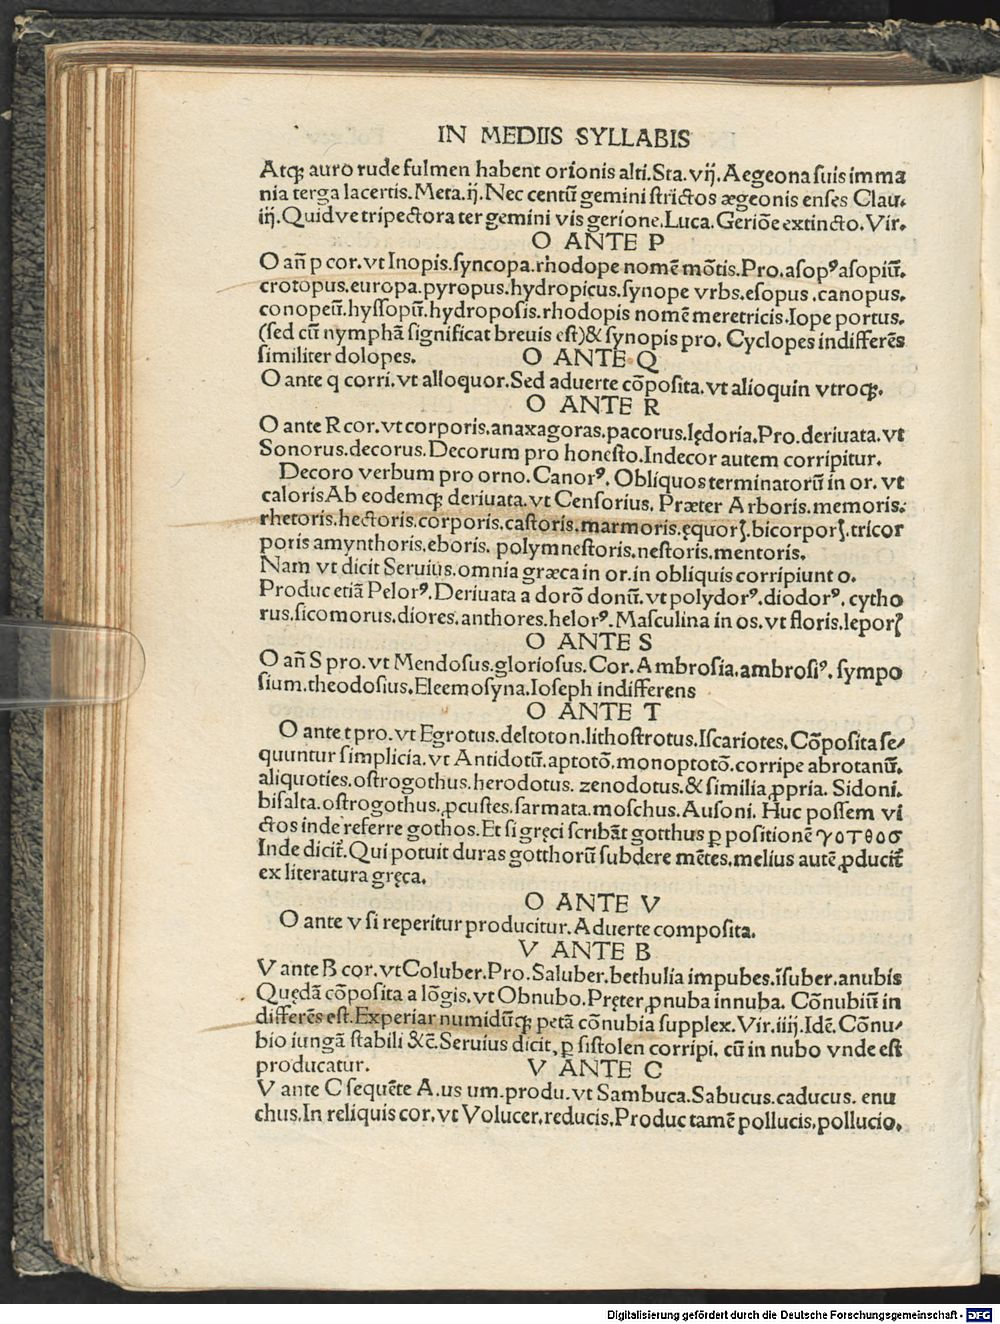 IN MEDIIS SYLLABIS
Atqꝫ auro rude fulmen habent orionis alti. Sta. vij. Aegeona suis imma
nia terga lacertis. Meta. ij. Nec centū gemini strictos ægeonis enses Clau.
iij. Quidve tripectora ter gemini vis gerione. Luca. Geriōe extincto. Vir.
O ANTE P
O an̄ p cor. vt Inopis. syncopa. rhodope nomē mōtis. Pro. asopꝰ asopiū.
crotopus. europa. pyropus. hydropicus. synope vrbs. esopus. canopus.
conopeū. hyssopū. hydroposis. rhodopis nomē meretricis. Iope portus.
(sed cū nymphā significat breuis est) & synopis pro. Cyclopes indifferēs
similiter dolopes. O ANTE Q
O ante q corri. vt alloquor. Sed aduerte cōposita. vt alioquin vtroqꝫ.
O ANTE R
O ante R cor. vt corporis. anaxagoras. pacorus. lędoria. Pro. deriuata. vt
Sonorus. decorus. Decorum pro honesto. Indecor autem corripitur.
Decoro verbum pro orno. Canorꝰ. Obliquos terminatorū in or. vt
caloris Ab eodemqꝫ deriuata. vt Censorius. Præter Arboris. memoris.
rhetoris. hectoris. corporis. castoris. marmoris. ęquorꝭ. bicorporꝭ. tricor
poris amynthoris. eboris. polymnestoris. nestoris. mentoris.
Nam vt dicit Seruius. omnia græca in or. in obliquis corripiunt o.
Produc etiā Pelorꝰ. Deriuata a dorō donū. vt polydorꝰ. diodorꝰ. cytho
rus. sicomorus. diores. anthores. helorꝰ. Masculina in os. vt floris. leporꝭ
O ANTE S
O an̄ S pro. vt Mendosus. gloriosus. Cor. Ambrosia. ambrosiꝰ. sympo
sium. theodosius. Eleemosyna. Ioseph indifferens
O ANTE T
O ante t pro. vt Egrotus. deltoton. lithostrotus. Iscariotes. Cōposita se/
quuntur simplicia. vt Antidotū. aptotō. monoptotō. corripe abrotanū.
aliquoties. ostrogothus. herodotus. zenodotus. & similia ꝓpria. Sidoni.
bisalta. ostrogothus. ꝓcustes. sarmata. moschus. Ausoni. Huc possem vi
ctos inde referre gothos. Et si gręci scribāt gotthus ꝑ positionē γοτθοσ
Inde dicit̄. Qui potuit duras gotthorū subdere mētes. melius autē ꝓducit̄
ex literatura gręca.
O ANTE V
O ante v si reperitur producitur. Aduerte composita.
V ANTE B
V ante B cor. vt Coluber. Pro. Saluber. bethulia impubes. īsuber. anubis
Quędā cōposita a lōgis. vt Obnubo. Pręter ꝓnuba innuba. Cōnubiū in
differēs est. Experiar numidūqꝫ petā cōnubia supplex. Vir. iiij. Idē. Cōnu/
bio iungā stabili &c̄. Seruius dicit, ꝑ sistolen corripi. cū in nubo vnde est
producatur. V ANTE C
V ante C sequēte A. us um. produ. vt Sambuca. Sabucus. caducus. enu
chus. In reliquis cor. vt Volucer. reducis. Produc tamē pollucis. pollucio.
Digitalisierung gefördert durch die Deutsche Forschungsgemeinschaft - DFG